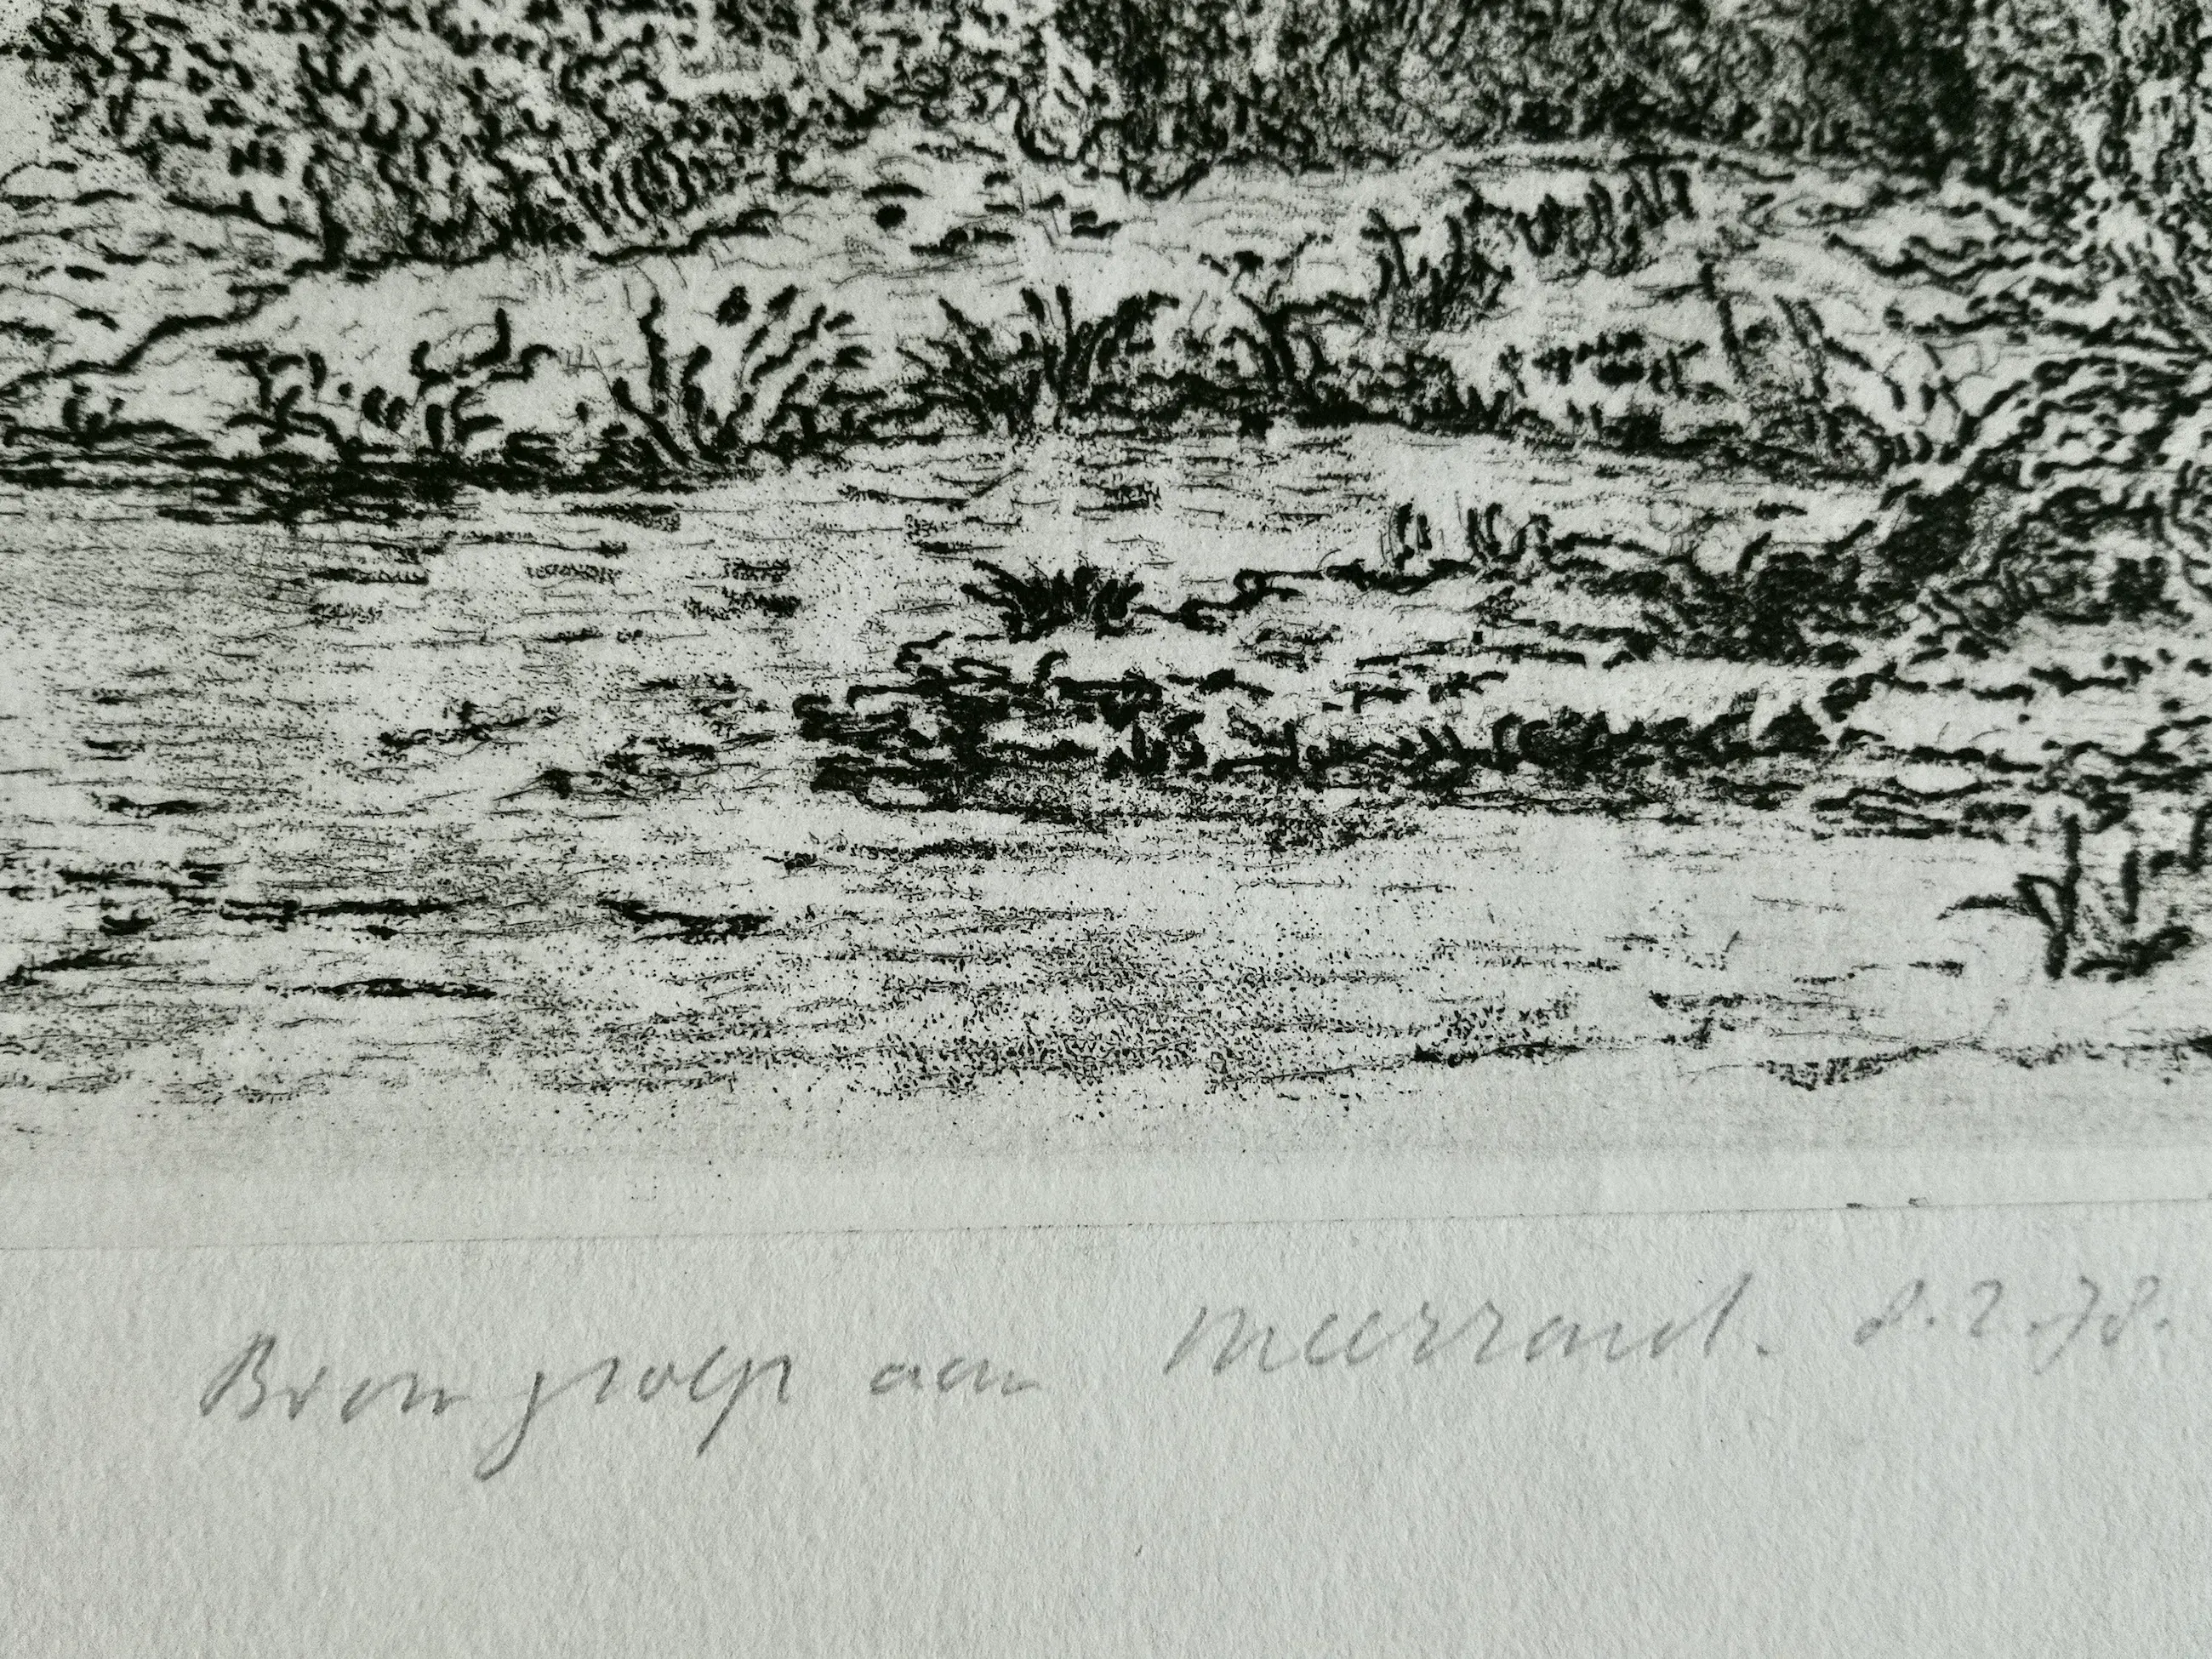 Boom groep aan Meerrand. 8.2.78.